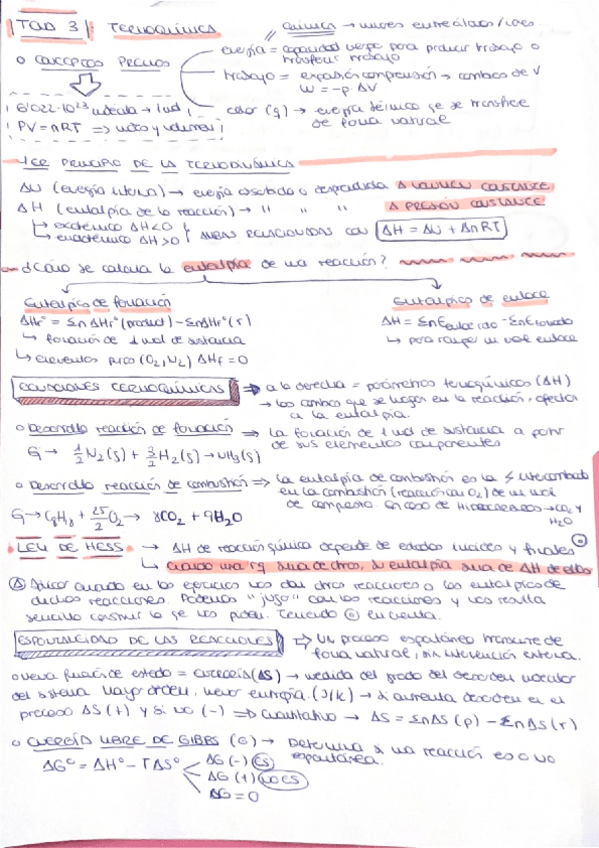 TEMA 3: TERMOQUÍMICA
química → uniones entre átomos/iones...
energía = capacidad cuerpo para producir trabajo o
transferir trabajo
○ CONCEPTOS PREVIOS
trabajo = expansión compresión → cambios de V
W = -p·ΔV
6'022·10²³ molécula → 1mol
calor (q) → energía térmica qe se transfiere
de forma natural
PV = nRT => moles y volumen
1ER PRINCIPIO DE LA TERMODINÁMICA
ΔU (energía interna) → energía absorbida o desprendida A VOLUMEN CONSTANTE
ΔH (entalpía de la reacción) → " " " A PRESIÓN CONSTANTE
↳ exotérmico ΔH<0
↳ endotérmico ΔH>0 AMBAS RELACIONADAS CON ΔH = ΔU + ΔnRT
¿Cómo se calcula la entalpía de una reacción?
Entalpías de formación
Entalpías de enlace
ΔHr° = ΣnΔHf°(product) - ΣnΔHf°(r)
ΔH = ΣnE enlace roto - ΣnE formado
↳ formación de 1 mol de sustancia
↳ para romper un mol enlace
↳ elementos puros (O₂, N₂) ΔHf = 0
ECUACIONES TERMOQUÍMICAS => a la derecha = parámetros termoquímicos (ΔH)
→ los cambios que se hagan en la reacción, afectan
a la entalpía.
○ Desarrollo reacción de formación => la formación de 1 mol de sustancia a partir
de sus elementos componentes
Ej → 1/2 N₂(g) + 3/2 H₂(g) → NH₃(g)
○ Desarrollo reacción de combustión => la entalpía de combustión es la intercambiada
en la combustión (reacción con O₂) de un mol
de compuesto. En caso de HIDROCARBUROS → CO₂ Y
H₂O
Ej → C₈H₈ + 25/2 O₂ → 8CO₂ + 9H₂O
LEY DE HESS → ΔH de reacción química depende de estados iniciales y finales
↳ Cuando una rq suma de otras, su entalpía suma de ΔH de ellas
Aplicar cuando en los ejercicios nos dan otras reacciones o las entalpías de
dichas reacciones. Podemos "jugar" con las reacciones y nos resulta
sencillo construir lo qe nos piden. Teniendo en cuenta.
ESPONTANEIDAD DE LAS REACCIONES => Un proceso espontáneo transcurre de
forma natural, sin intervención externa.
○ Nueva función de estado = ENTROPÍA (ΔS) → medida del grado del desorden molecular
del sistema. Mayor orden, menor entropía. (J/K) → si aumenta desorden en el
proceso ΔS (+) y si no (-) => Cuantitativo → ΔS = ΣnΔS (p) - ΣnΔS (r)
○ ENERGÍA LIBRE DE GIBBS (G) → Determina si una reacción es o no
espontánea.
ΔG° = ΔH° - TΔS°
ΔG (-) ES
ΔG (+) NO ES
ΔG = 0